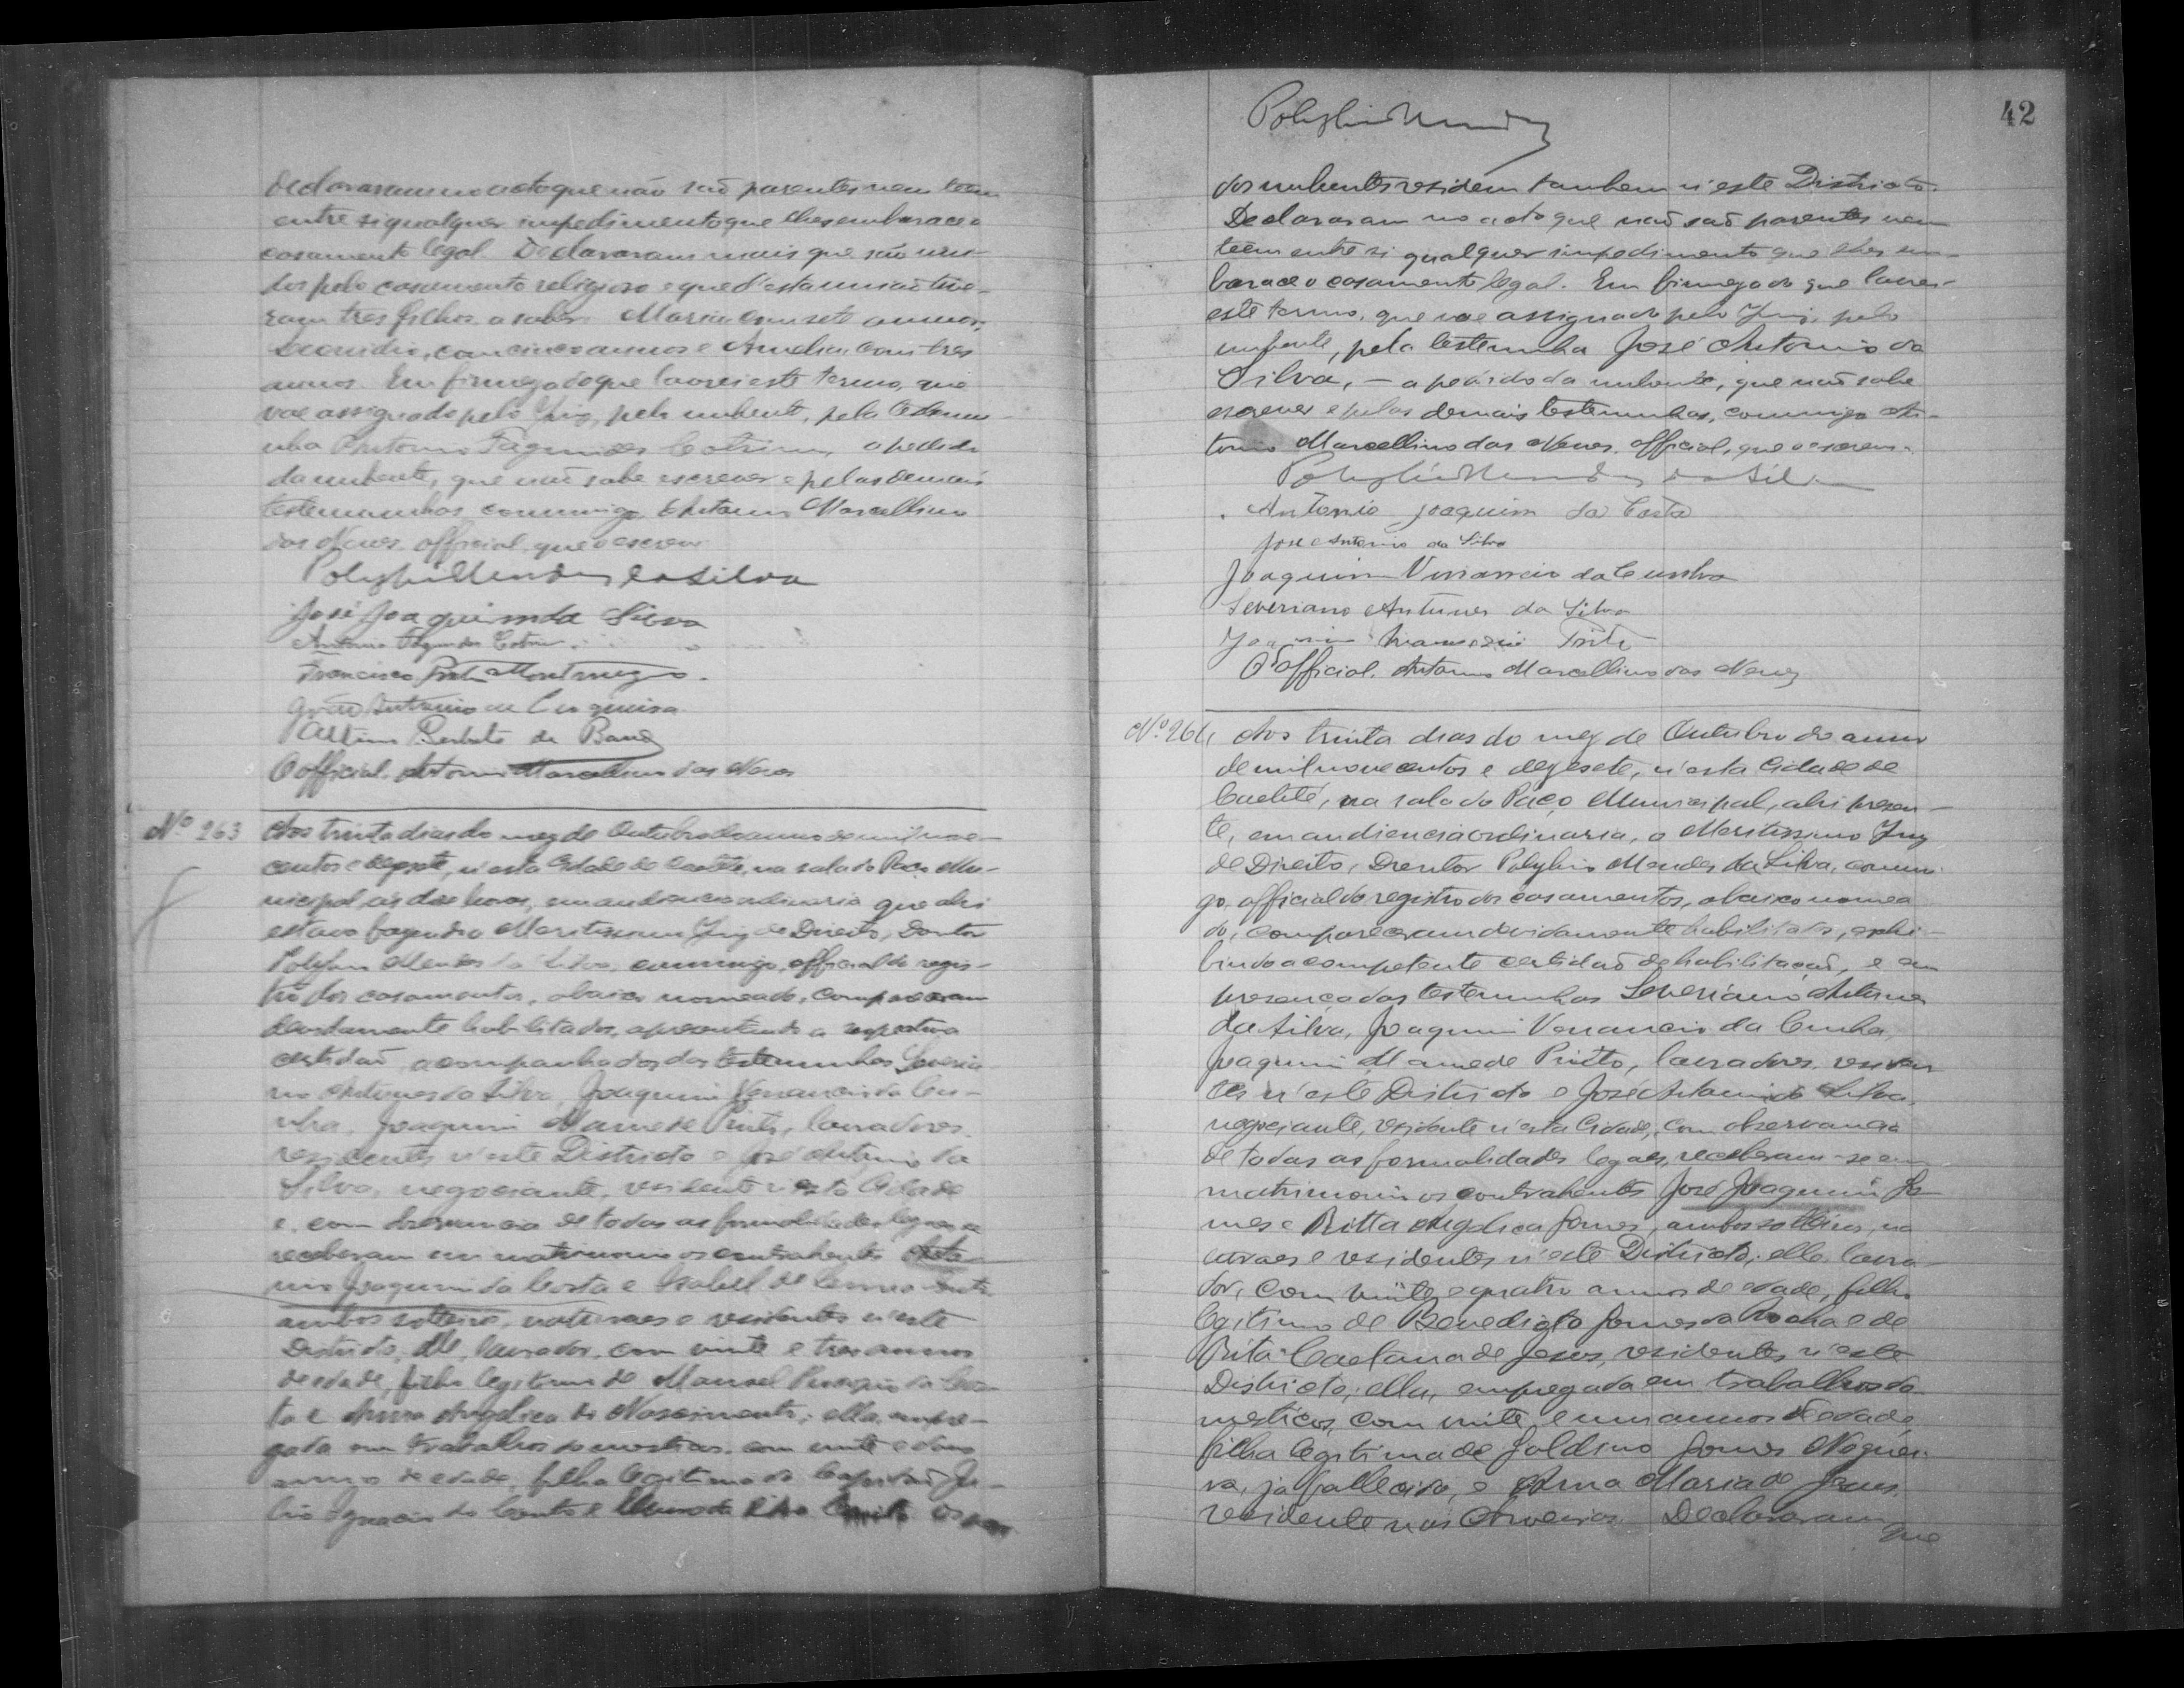 declararam no acto que não são parentes nem teem
entre si qualquer impedimento que lhes embarace o
casamento legal. Declararam mais que são uni-
dos pelo casamento religioso e que d'esta união tive-
ram tres filhos a saber: Maria com sete annos,
com cinco annos e Amelia com tres
annos. Em firmeza do que lavrei este termo, que
vae assignado pelo Juiz, pelo nubente, pela testemu-
nha Antonio Fagundes Cotrim, a pedido
da nubente, que não sabe escrever e pelas demais
testemunhas commigo, Antonio Marcellino
das Neves, official, que o escrevi.
Polybio Mendes da Silva
José Joaquim da Silva
Antonio Fagundes Cotrim
Francisco Montenegro.
João Antonio de Cerqueira
O official, Antonio Marcellino das Neves
Nº 263 Aos trinta dias do mez de Outubro do anno de mil nove-
centos e dezesete, n'esta Cidade de Caeteté, na sala do Paço Mu-
nicipal, ás doze horas, em audiencia ordinaria que ahi
estava fazendo o Meritissimo Juiz de Direito, Doutor
Polybio Mendes da Silva, commigo, official do regis-
tro dos casamentos, abaixo nomeado, compareceram
devidamente habilitados, apresentando a respectiva
certidão, acompanhados das testemunhas Severia-
no Antunes da Silva, Joaquim Venancio da Cu-
nha, Joaquim Mamede Pinto, lavradores,
residentes n'este Districto e José Antonio da
Silva, negociante, residente n'esta Cidade
e, com observancia de todas as formalidades legaes, se
receberam em matrimonio os contrahentes Anto-
nio Joaquim da Costa e Isabel de
ambos solteiros, naturaes e residentes n'este
Districto, elle, lavrador, com vinte e tres annos
de edade, filho legitimo de Manoel da Cos-
ta e Anna Angelica do Nascimento; ella, empre-
gada em trabalhos domesticos, com vinte e dous
annos de edade, filha legitima do Capitão Ju-
lio Ignacio do Couto e
42
Polybio Mendes
dos nubentes residem tambem n'este Districto.
Declararam no acto que não são parentes nem
teem entre si qualquer impedimento que lhes em-
barace o casamento legal. Em firmeza do que lavrei
este termo, que vae assignado pelo Juiz, pelo
nubente, pela testemunha José Antonio da
Silva, - a pedido da nubente, que não sabe
escrever e pelas demais testemunhas, commigo An-
tonio Marcellino das Neves, official, que o escrevi.
Polybio Mendes da Silva
Antonio Joaquim da Costa
José Antonio da Silva
Joaquim Venancio da Cunha
Severiano Antunes da Silva
Joaquim Pinto
O official, Antonio Marcellino das Neves
Nº 264 Aos trinta dias do mez de Outubro do anno
de mil novecentos e dezesete, n'esta Cidade de
Caeteté, na sala do Paço Municipal, ahi presen-
te, em audiencia ordinaria, o Meritissimo Juiz
de Direito, Doutor Polybio Mendes da Silva, commi-
go, official do registro dos casamentos, abaixo nomea
do, compareceram devidamente habilitados, exhi-
bindo a competente certidão de habilitação, e em
presença das testemunhas Severiano Antunes
da Silva, Joaquim Venancio da Cunha,
Joaquim Mamede Pinto, lavradores, residen
tes n'este Districto e José Antonio da Silva,
negociante, residente n'esta Cidade, com observancia
de todas as formalidades legaes, receberam-se em
matrimonio os contrahentes José Joaquim Go-
mes e Ritta Angelica Gomes, ambos solteiros, na
turaes e residentes n'este Districto; elle, lavra-
dor, com vinte e quatro annos de edade, filho
legitimo de Benedicto Gomes da Rocha e de
Rita Caetana de Jesus, residentes n'este
Districto; ella, empregada em trabalhos do-
mesticos, com vinte e um annos de edade,
filha legitima de Galdino Gomes Noguei-
ra, já fallecido, e Anna Maria de Jesus,
residente nas Aroeiras. Declararam
que